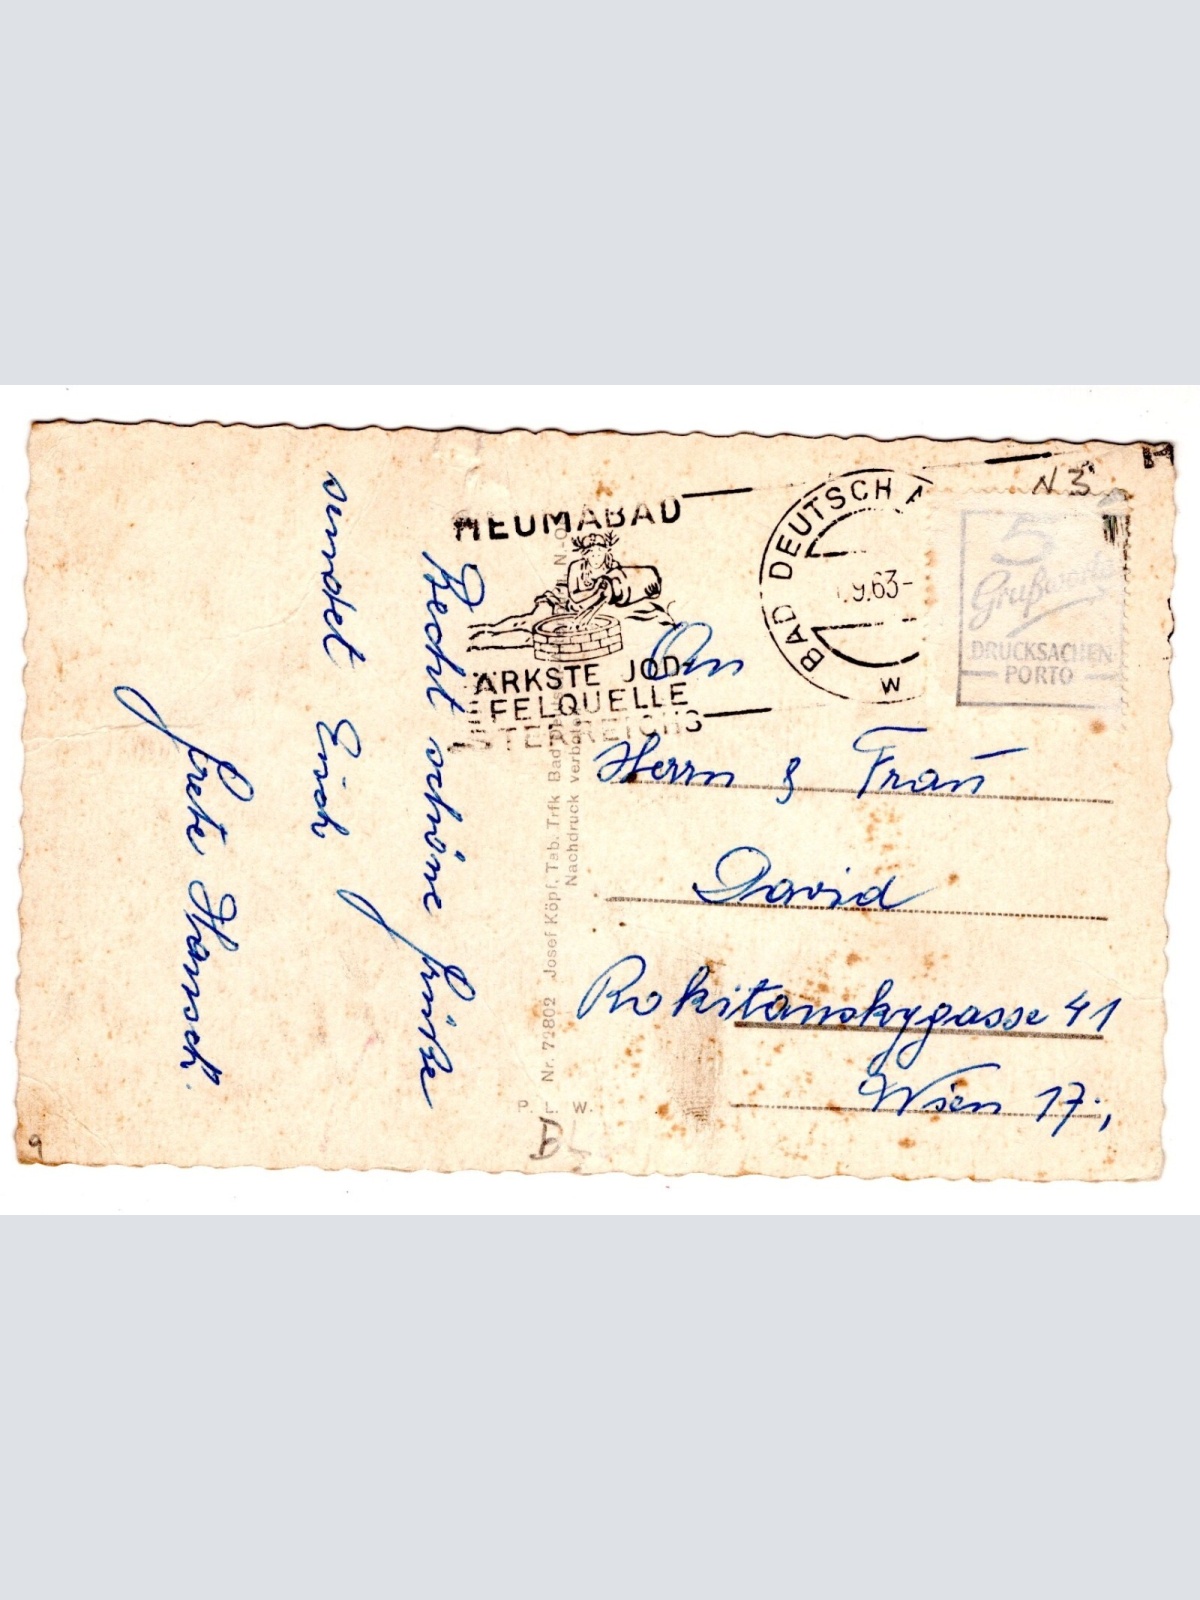 Recht schöne Grüße
sendet Euch
Grete Hansch.
HEUMABAD
ÄRKSTE JOD-
EFELQUELLE
STERREICHS
BAD DEUTSCH A
.9.63-
w
N 3
5
Grußworte
DRUCKSACHEN
PORTO
An
Herrn & Frau
David
Rokitanskygasse 41
Wien 17.,
Nr. 72802 Josef Köpf, Tab. Trfk Bad
Nachdruck verboten
P. L. W.
9